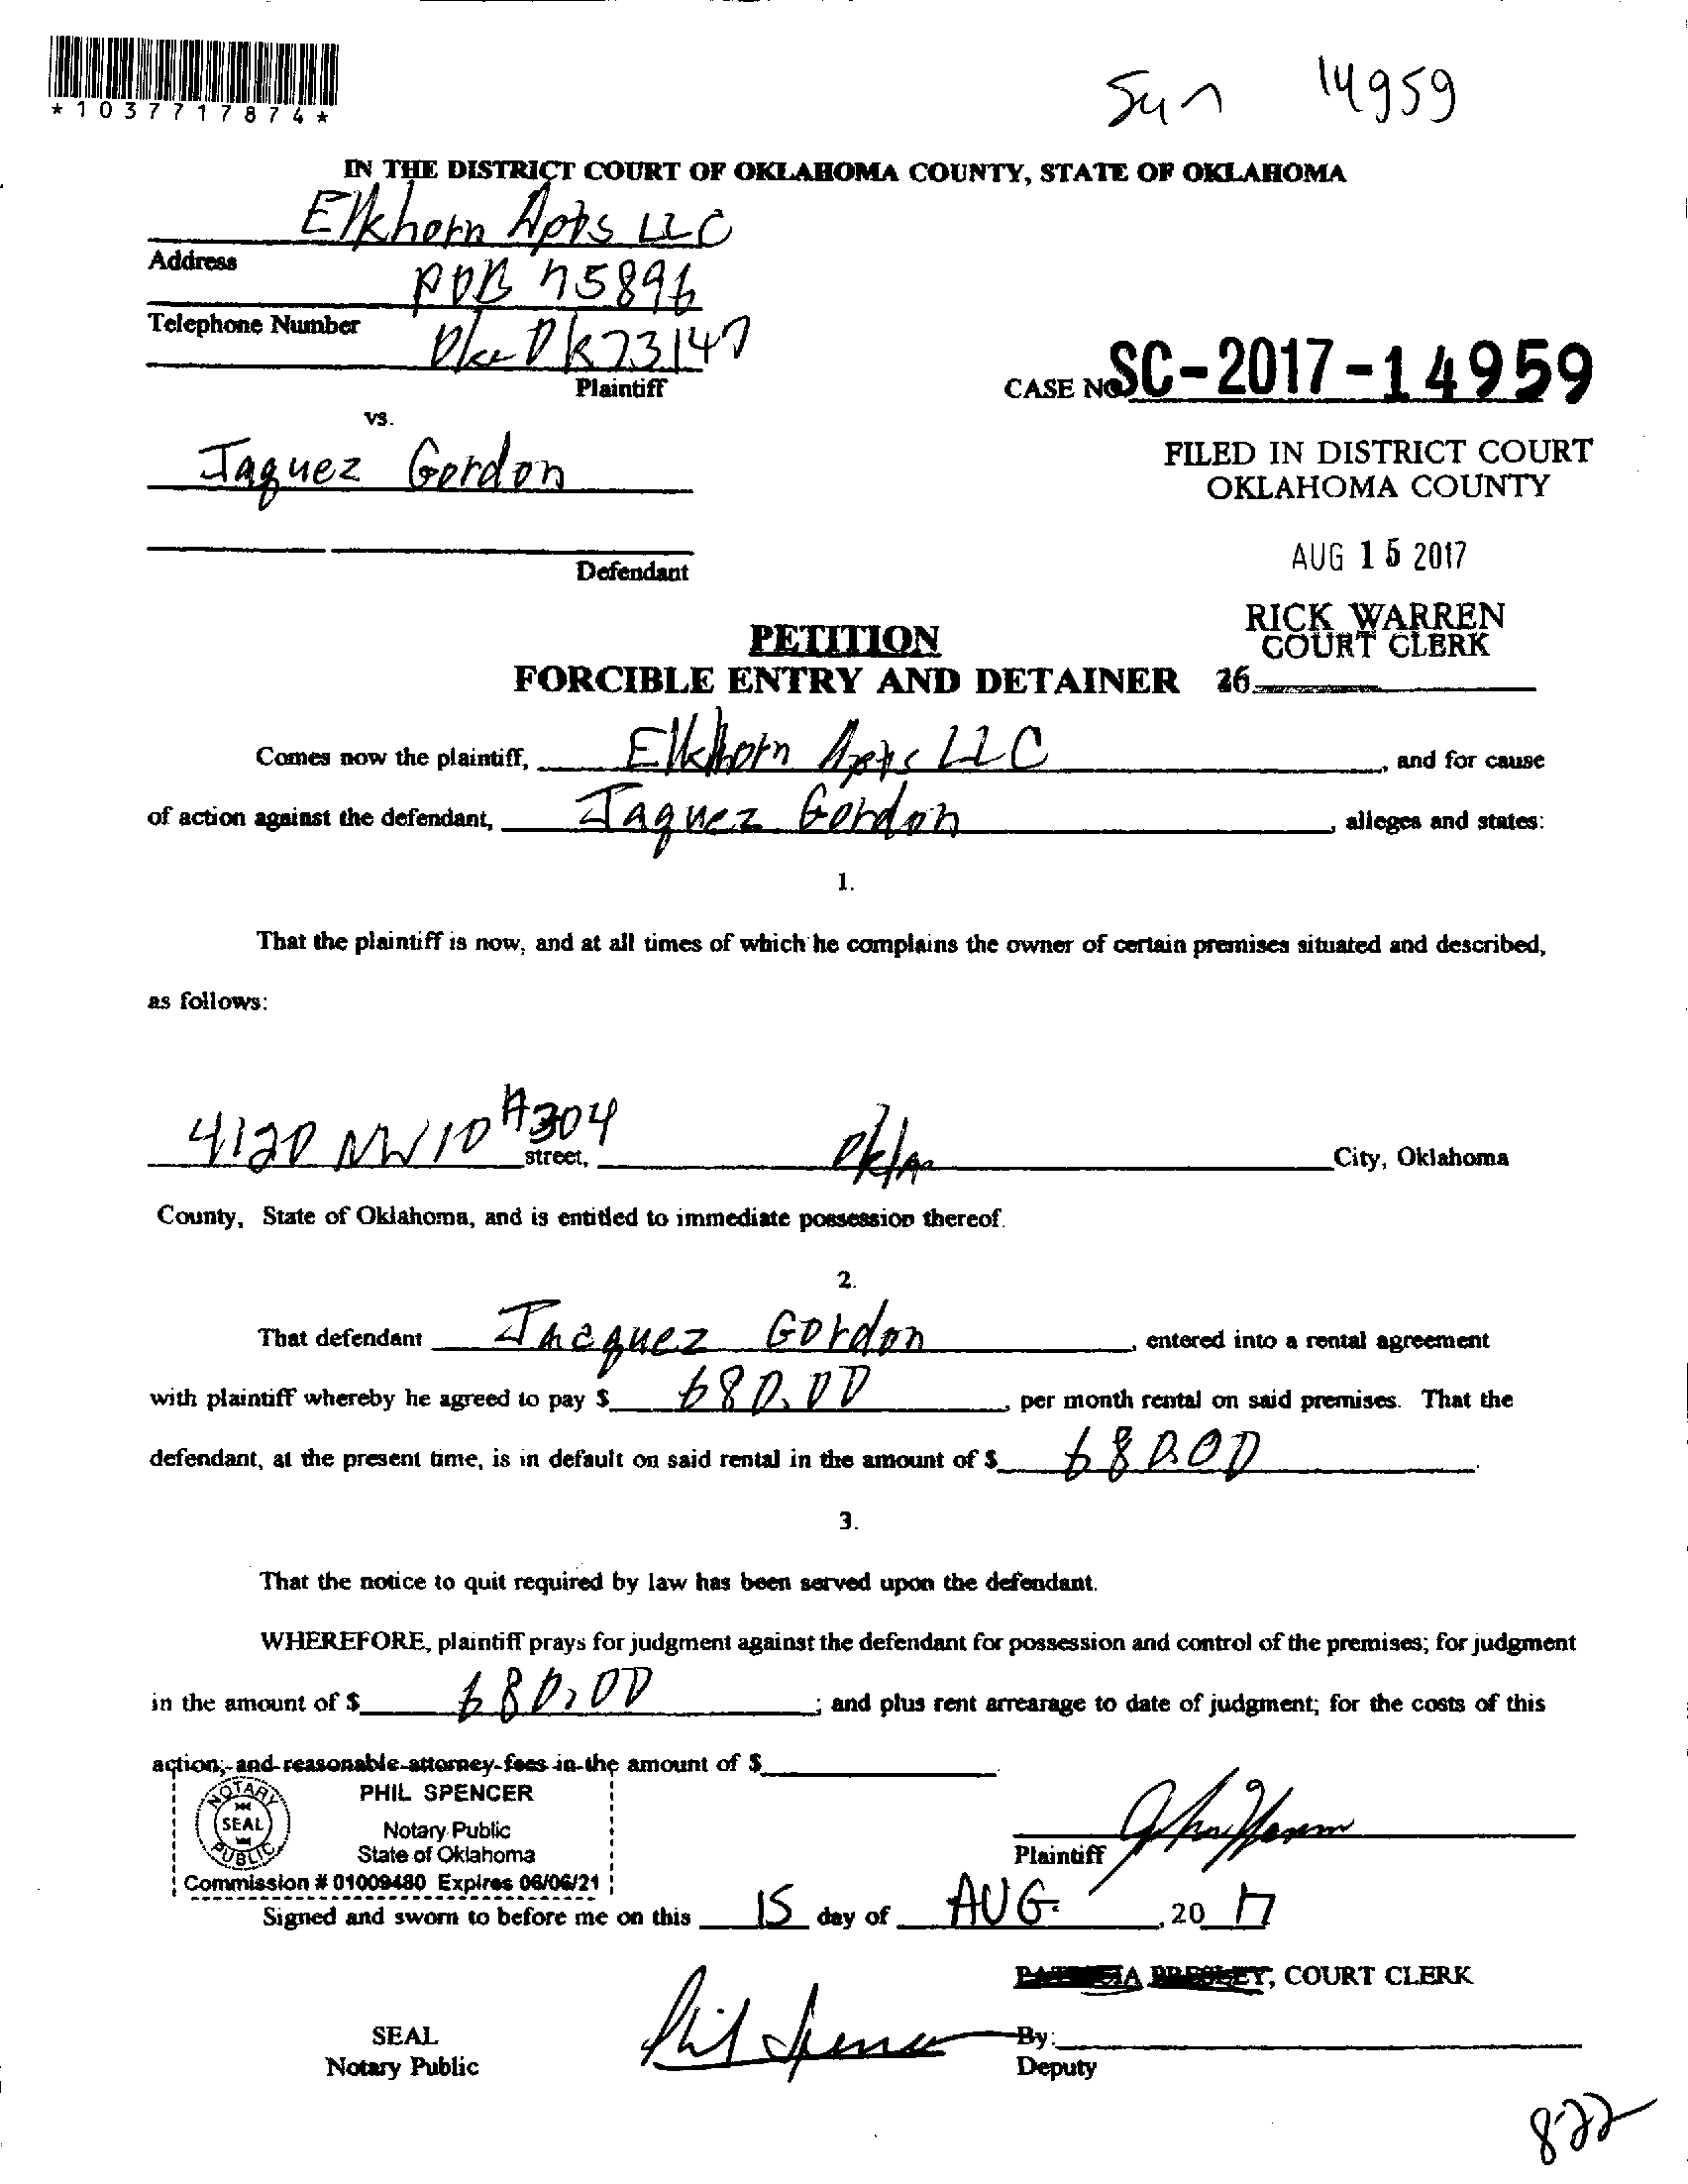 *1037717874*
Sun 14959
IN THE DISTRICT COURT OF OKLAHOMA COUNTY, STATE OF OKLAHOMA
Elkhorn Apts LLC
Address
POB 75896
Telephone Number
Okc Ok 73147
Plaintiff
CASE NO SC-2017-14959
vs.
Jaquez Gordon
FILED IN DISTRICT COURT
OKLAHOMA COUNTY
Defendant
AUG 15 2017
RICK WARREN
COURT CLERK
PETITION
FORCIBLE ENTRY AND DETAINER
26
Comes now the plaintiff, Elkhorn Apts LLC, and for cause
of action against the defendant, Jaquez Gordon, alleges and states:
1.
That the plaintiff is now, and at all times of which he complains the owner of certain premises situated and described,
as follows:
4120 NW 10 #304 street, Okla City, Oklahoma
County, State of Oklahoma, and is entitled to immediate possession thereof.
2.
That defendant Jacquez Gordon, entered into a rental agreement
with plaintiff whereby he agreed to pay $ 680.00, per month rental on said premises. That the
defendant, at the present time, is in default on said rental in the amount of $ 680.00.
3.
That the notice to quit required by law has been served upon the defendant.
WHEREFORE, plaintiff prays for judgment against the defendant for possession and control of the premises; for judgment
in the amount of $ 680.00; and plus rent arrearage to date of judgment; for the costs of this
action; and reasonable attorney fees in the amount of $
NOTARY PUBLIC SEAL
PHIL SPENCER
Notary Public
State of Oklahoma
Commission # 01009480 Expires 06/06/21
Plaintiff
Signed and sworn to before me on this 15 day of AUG., 20 17
PATRICIA PRESLEY, COURT CLERK
SEAL
Notary Public
Phil Spencer
By:
Deputy
822